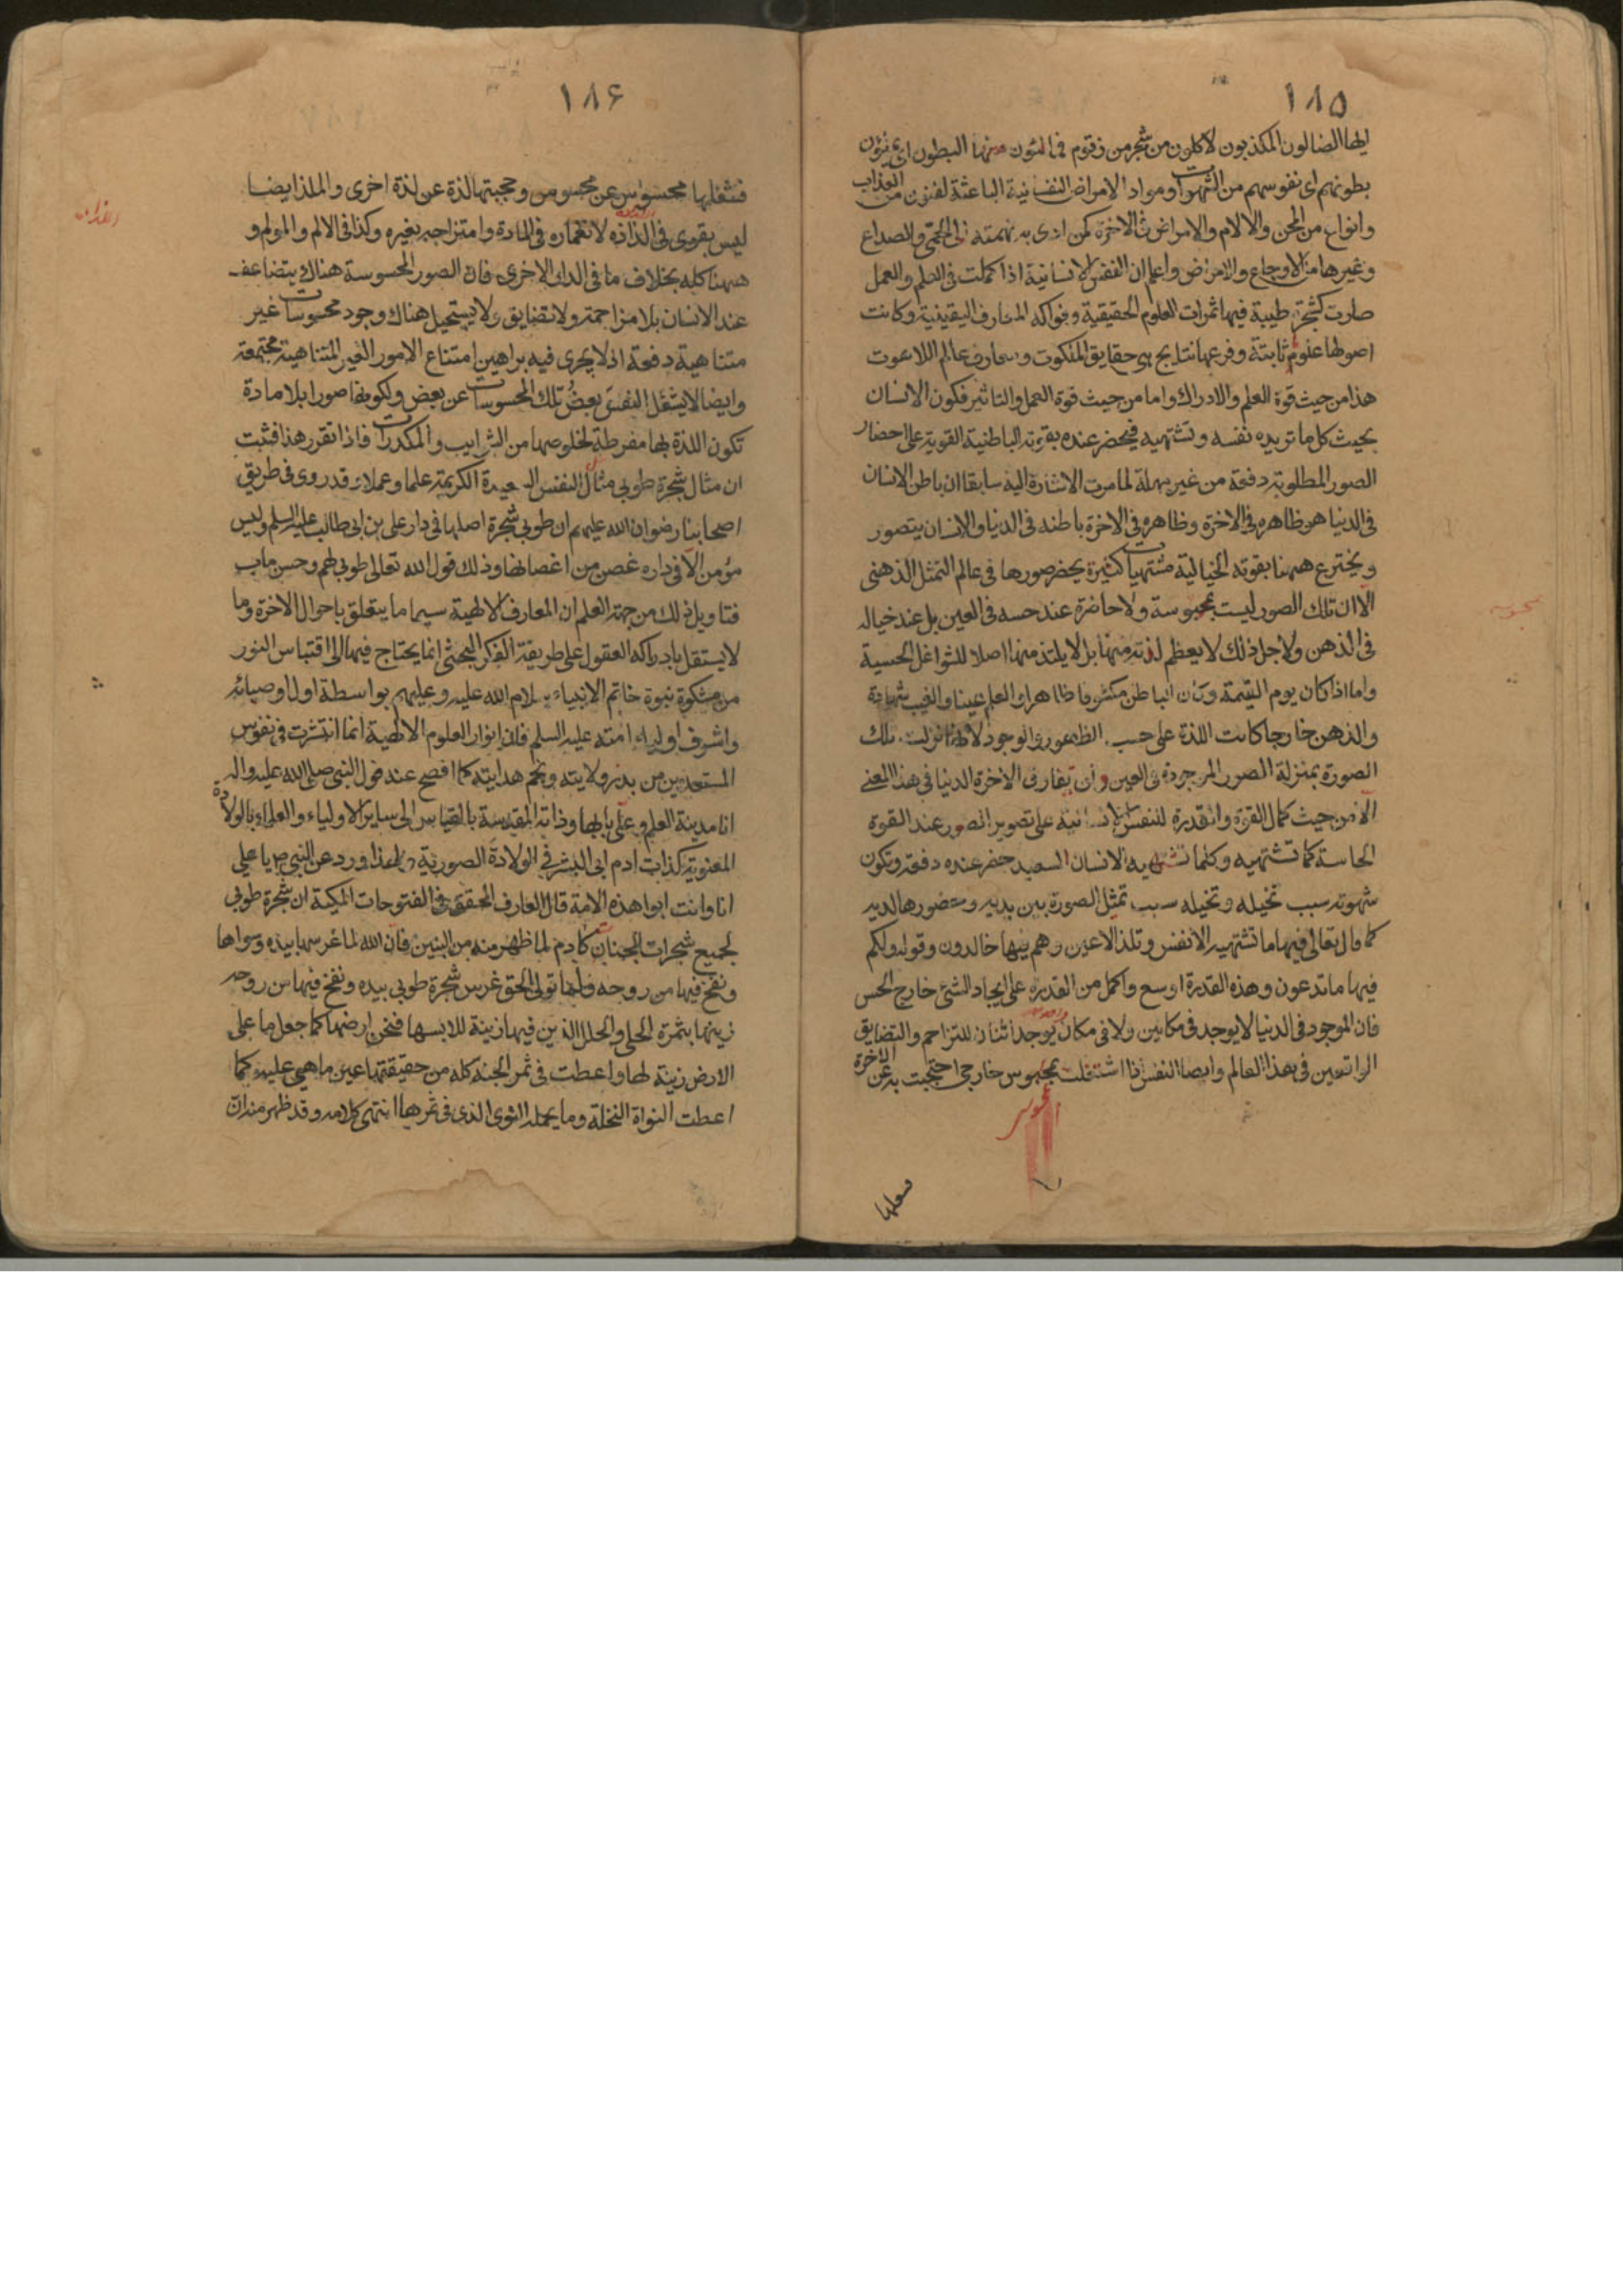 ١٨٥
ايها الضالون المكذبون لاكلون من شجر من زقوم فمالئون منها البطون اى يملؤن
بطونهم اى نفوسهم من الشهوات ومواد الامراض النفسانية الباعثة لفنون من العذاب
وانواع من المحن والالام والامراض فى الاخرة كمن ادى به نهمته الى الحمى والصداع
وغيرها من الاوجاع والامراض واعلم ان النفس الانسانية اذا كملت فى العلم والعمل
صارت كشجرة طيبة فيها ثمرات العلوم الحقيقية وفواكه المعارف اليقينية وكانت
اصولها علوم ثابتة وفرعها نتايج هى حقايق الملكوت ومعارف عالم اللاهوت
هذا من حيث قوة العلم والادراك واما من حيث قوة العمل والتاثير فكون الانسان
بحيث كل ما تريده نفسه وتشتهيه فيحضر عنده بقوته الباطنية القوية على احضار
الصور المطلوبة دفعة من غير مهلة لما مرت الاشارة اليه سابقا ان باطن الانسان
فى الدنيا هو ظاهره فى الاخرة وظاهره فى الاخرة باطنه فى الدنيا والانسان يتصور
ويخترع ههنا بقوته الخيالية مشتهيات كثيرة يحضر صورها فى عالم التمثل الذهنى
الا ان تلك الصور ليست بمحبوسة ولا حاضرة عند حسه فى العين بل عند خياله
فى الذهن ولاجل ذلك لا يعظم لذته منها بل لا يلتذ منها اصلا للشواغل الحسية
واما اذا كان يوم القيمة وكان الباطن مكشوفا ظاهرا والعلم عينا والغيب شهادة
والذهن خارجا كانت اللذة على حسب الظهور والوجود لانها نزلت تلك
الصورة بمنزلة الصور الموجودة فى العين ولن يفارق الاخرة الدنيا فى هذا المعنى
الا من حيث كمال القوة والقدرة للنفس الانسانية على تصوير الصور عند القوة
الحاسة كما تشتهيه وكلما تشتهيه الانسان السعيد حضر عنده دفعة وتكون
شهوته سبب تخيله وتخيله سبب تمثل الصورة بين يديه وحضورها لديه
كما قال تعالى فيها ما تشتهيه الانفس وتلذ الاعين وهم فيها خالدون وقوله ولكم
فيها ما تدعون وهذه القدرة اوسع واكمل من القدرة على ايجاد الشئ خارج الحس
فان الموجود فى الدنيا لا يوجد فى مكانين ولا فى مكان واحد يوجد اثنان للتزاحم والتضايق
الواقعين فى هذا العالم وايضا النفس اذا اشتغلت بمحبوس خارجى احتجبت به عن الاخرة
بمحسوس
فشغلها
محسوسة
١٨٦
فشغلها محسوس عن محسوس وحجبتها لذة عن لذة اخرى والملذ ايضا
ليس بقوى فى الذاذه لانغماره فى المادة وامتزاجه بغيره وكذا فى الالم والمولم و
ههنا كله بخلاف ما فى الدار الاخرى فان الصور المحسوسة هناك يتضاعف
عند الانسان بلا مزاحمة ولا تضايق ولا يستحيل هناك وجود محسوسات غير
متناهية دفعة اذ لا يجرى فيه براهين امتناع الامور الغير المتناهية مجتمعة
وايضا لا يشغل النفس بعض تلك المحسوسات عن بعض ولكونها صورا بلا مادة
تكون اللذة بها مفرطة لخلوصها من الشرايب والمكدرات فاذا تقرر هذا فثبت
ان مثال شجرة طوبى مثال النفس السعيدة الكريمة علما وعملا وقد روى فى طريق
اصحابنا رضوان الله عليهم ان طوبى شجرة اصلها فى دار على بن ابى طالب عليه السلم وليس
مؤمن الا فى داره غصن من اغصانها وذلك قول الله تعالى طوبى لهم وحسن ماب
فتاويل ذلك من جهة العلم ان المعارف الالهية سيما ما يتعلق باحوال الاخرة وما
لا يستقل بادراكه العقول على طريقة الفكر البحثى انما يحتاج فيها الى اقتباس النور
من مشكوة نبوة خاتم الانبياء سلام الله عليه وعليهم بواسطة اول اوصيائه
واشرف اولياء امته عليه السلم فان انوار العلوم الالهية انما انتشرت فى نفوس
المستعدين من بدر ولايته ونجم هدايته كما افصح عنه قول النبى صلى الله عليه واله
انا مدينة العلم وعلى بابها وذاته المقدسة بالقياس الى ساير الاولياء والعلماء بالولادة
المعنوية كذات ادم ابى البشر فى الولادة الصورية ولهذا ورد عن النبى ص يا على
انا وانت ابوا هذه الامة قال العارف المحقق فى الفتوحات المكية ان شجرة طوبى
لجميع شجرات الجنان كادم لما ظهر منه من البنين فان الله لما غرسها بيده وسواها
ونفخ فيها من روحه ولما تولى الحق غرس شجرة طوبى بيده ونفخ فيها من روحه
زينها بثمرة الحلى والحلل الذين فيها زينة للابسها فنحن ارضها كما جعل ما على
الارض زينة لها واعطت فى ثمر الجنة كله من حقيقتها عين ما هى عليه كما
اعطت النواة النخلة وما يحمله النوى الذى فى ثمرها انتهى كلامه وقد ظهر منه ان